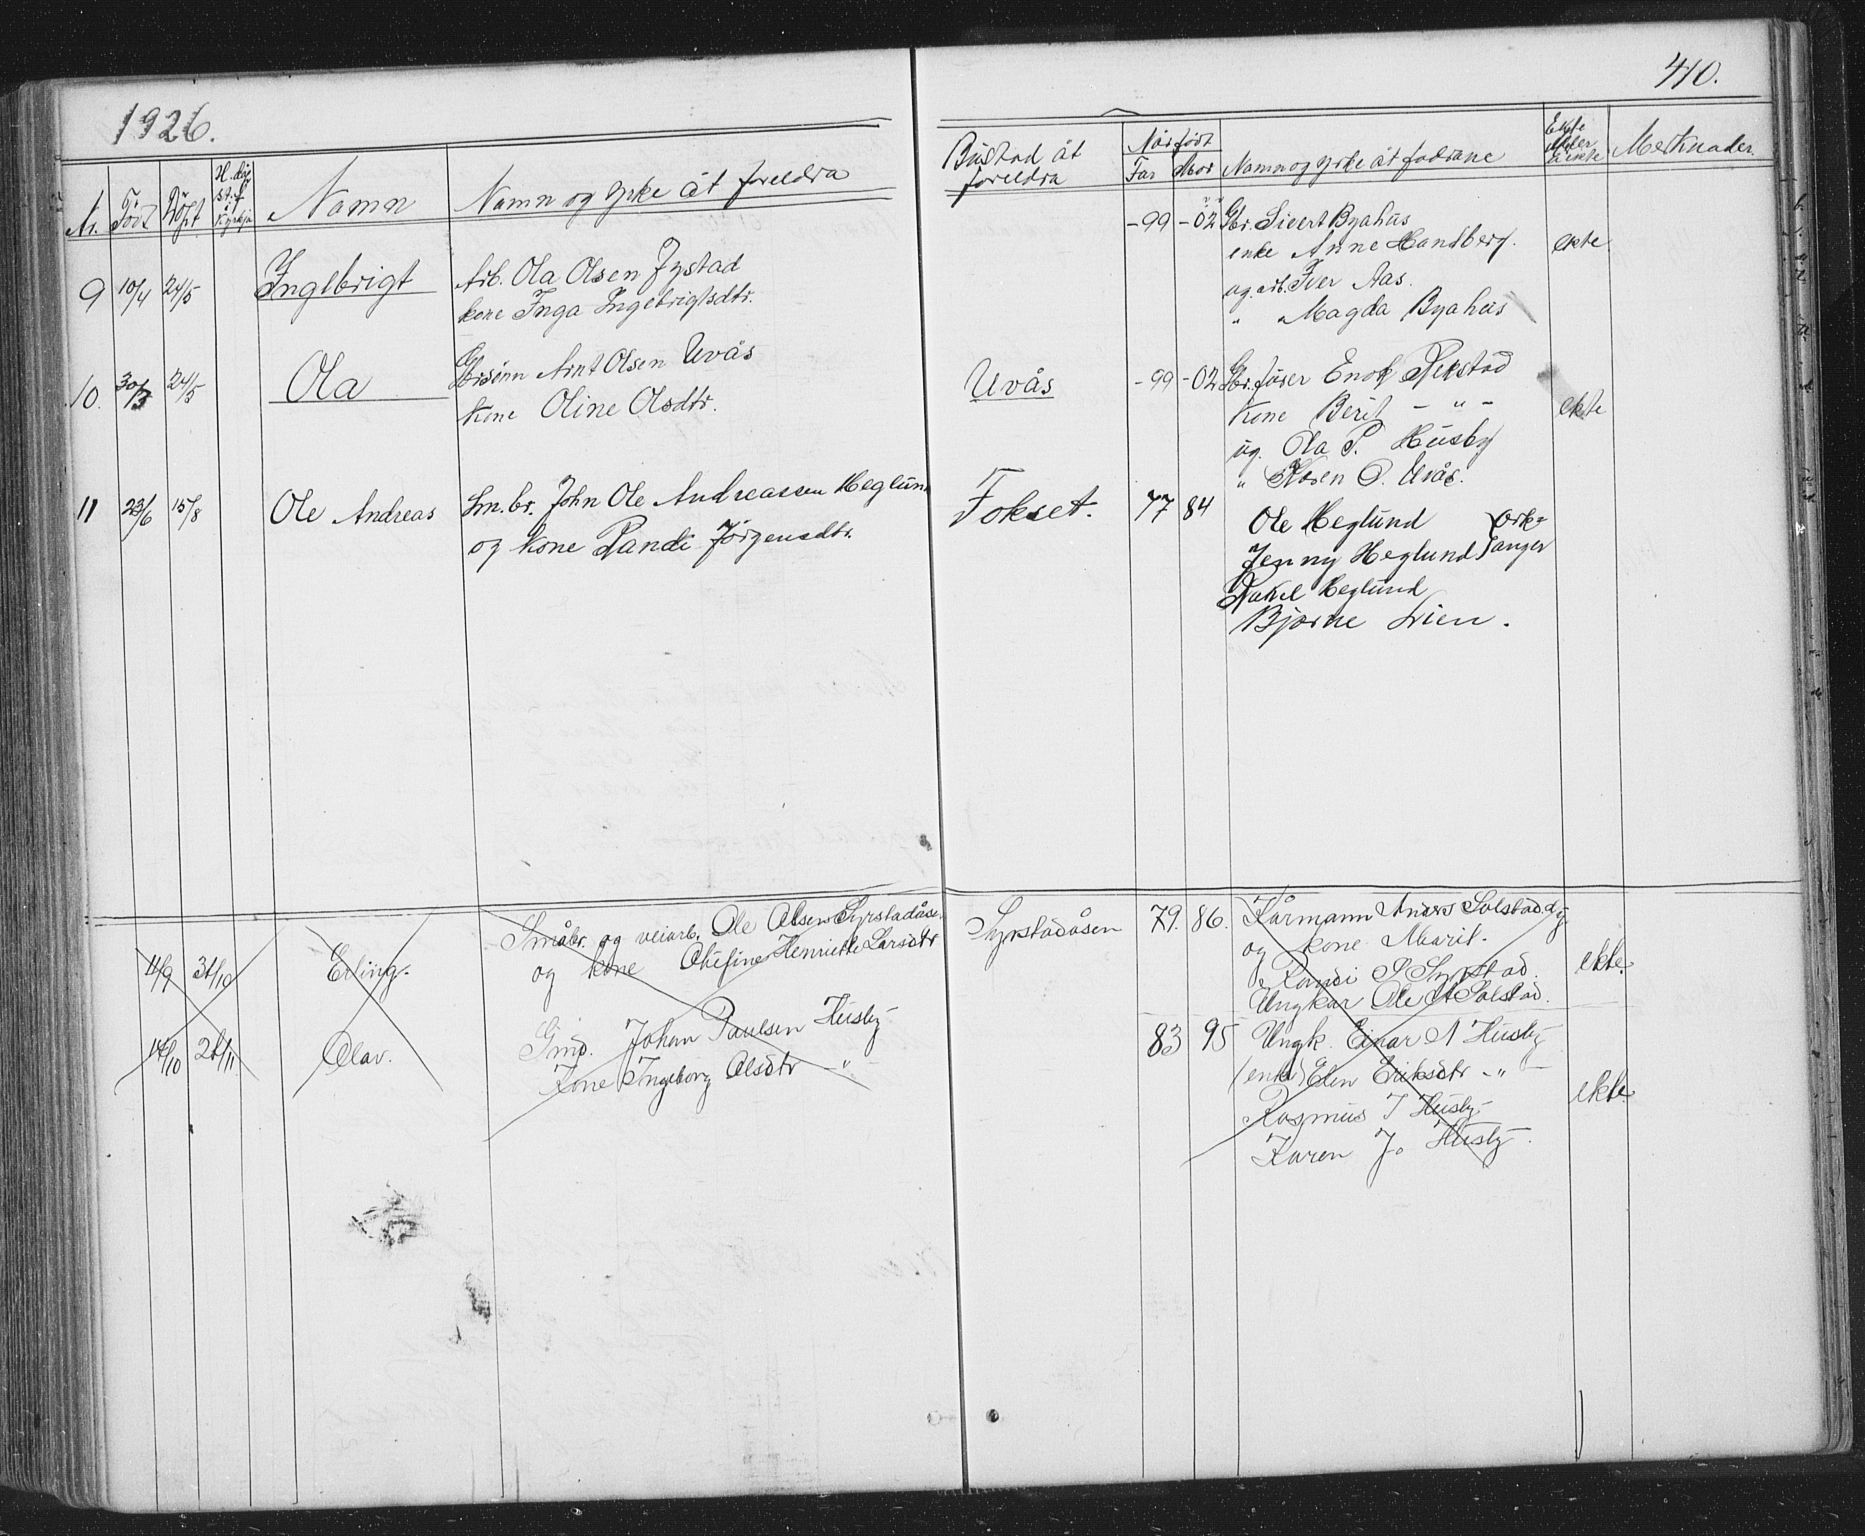 1926.
410.
Nr. Född Döpt H. dåp st. f. i kyrkja Namn Namn og yrke åt foreldra Bustad åt foreldra Når født Far Mor Namn og yrke åt fadrane Ekte eller uekte Merknader
9 10/4 24/5 Ingebrigt Arb. Ola Olsen Jystad -99 -02 Gbr. Sivert Byahus ekte
kone Inga Ingebrigtsdtr. enke Anne Handberg.
ug. arb. Iver Aas.
" " Magda Byahus
10. 30/3 24/5 Ola Gbrsönn Arnt Olsen Uvås Uvås -99 -02 Gbr. fåser Enok Rekstad ekte
kone Oline Olsdtr. Kone Berit - " -
ug. Ola P. Husby
" Karen O. Uvås.
11 23/6 15/8 Ole Andreas Sm.br. John Ole Andreassen Heglund Fokset. 77 84 Ole Heglund Ork-
og kone Randi Jörgensdtr. Jenny Heglund anger
Rakel Heglund
Bjarne Lien.
11/9 31/10 Erling. Småbr. og veiarb. Ole Olsen Syrstadåsen Syrstadåsen 79. 86. Kårmann Anders Solstad ekte.
og kone Olefine Henriette Larsdtr og kone Marit.
Randi P Syrstad.
Ungkar Ole A Solstad.
14/10 21/11 Olav. Gmd. Johan Paulsen Husby 83 95 Ungk. Einar A Husby ekte.
Kone Ingeborg Olsdtr - " - (enke) Elen Eriksdtr - " -
Rasmus J Husby
Karen J. Husby.